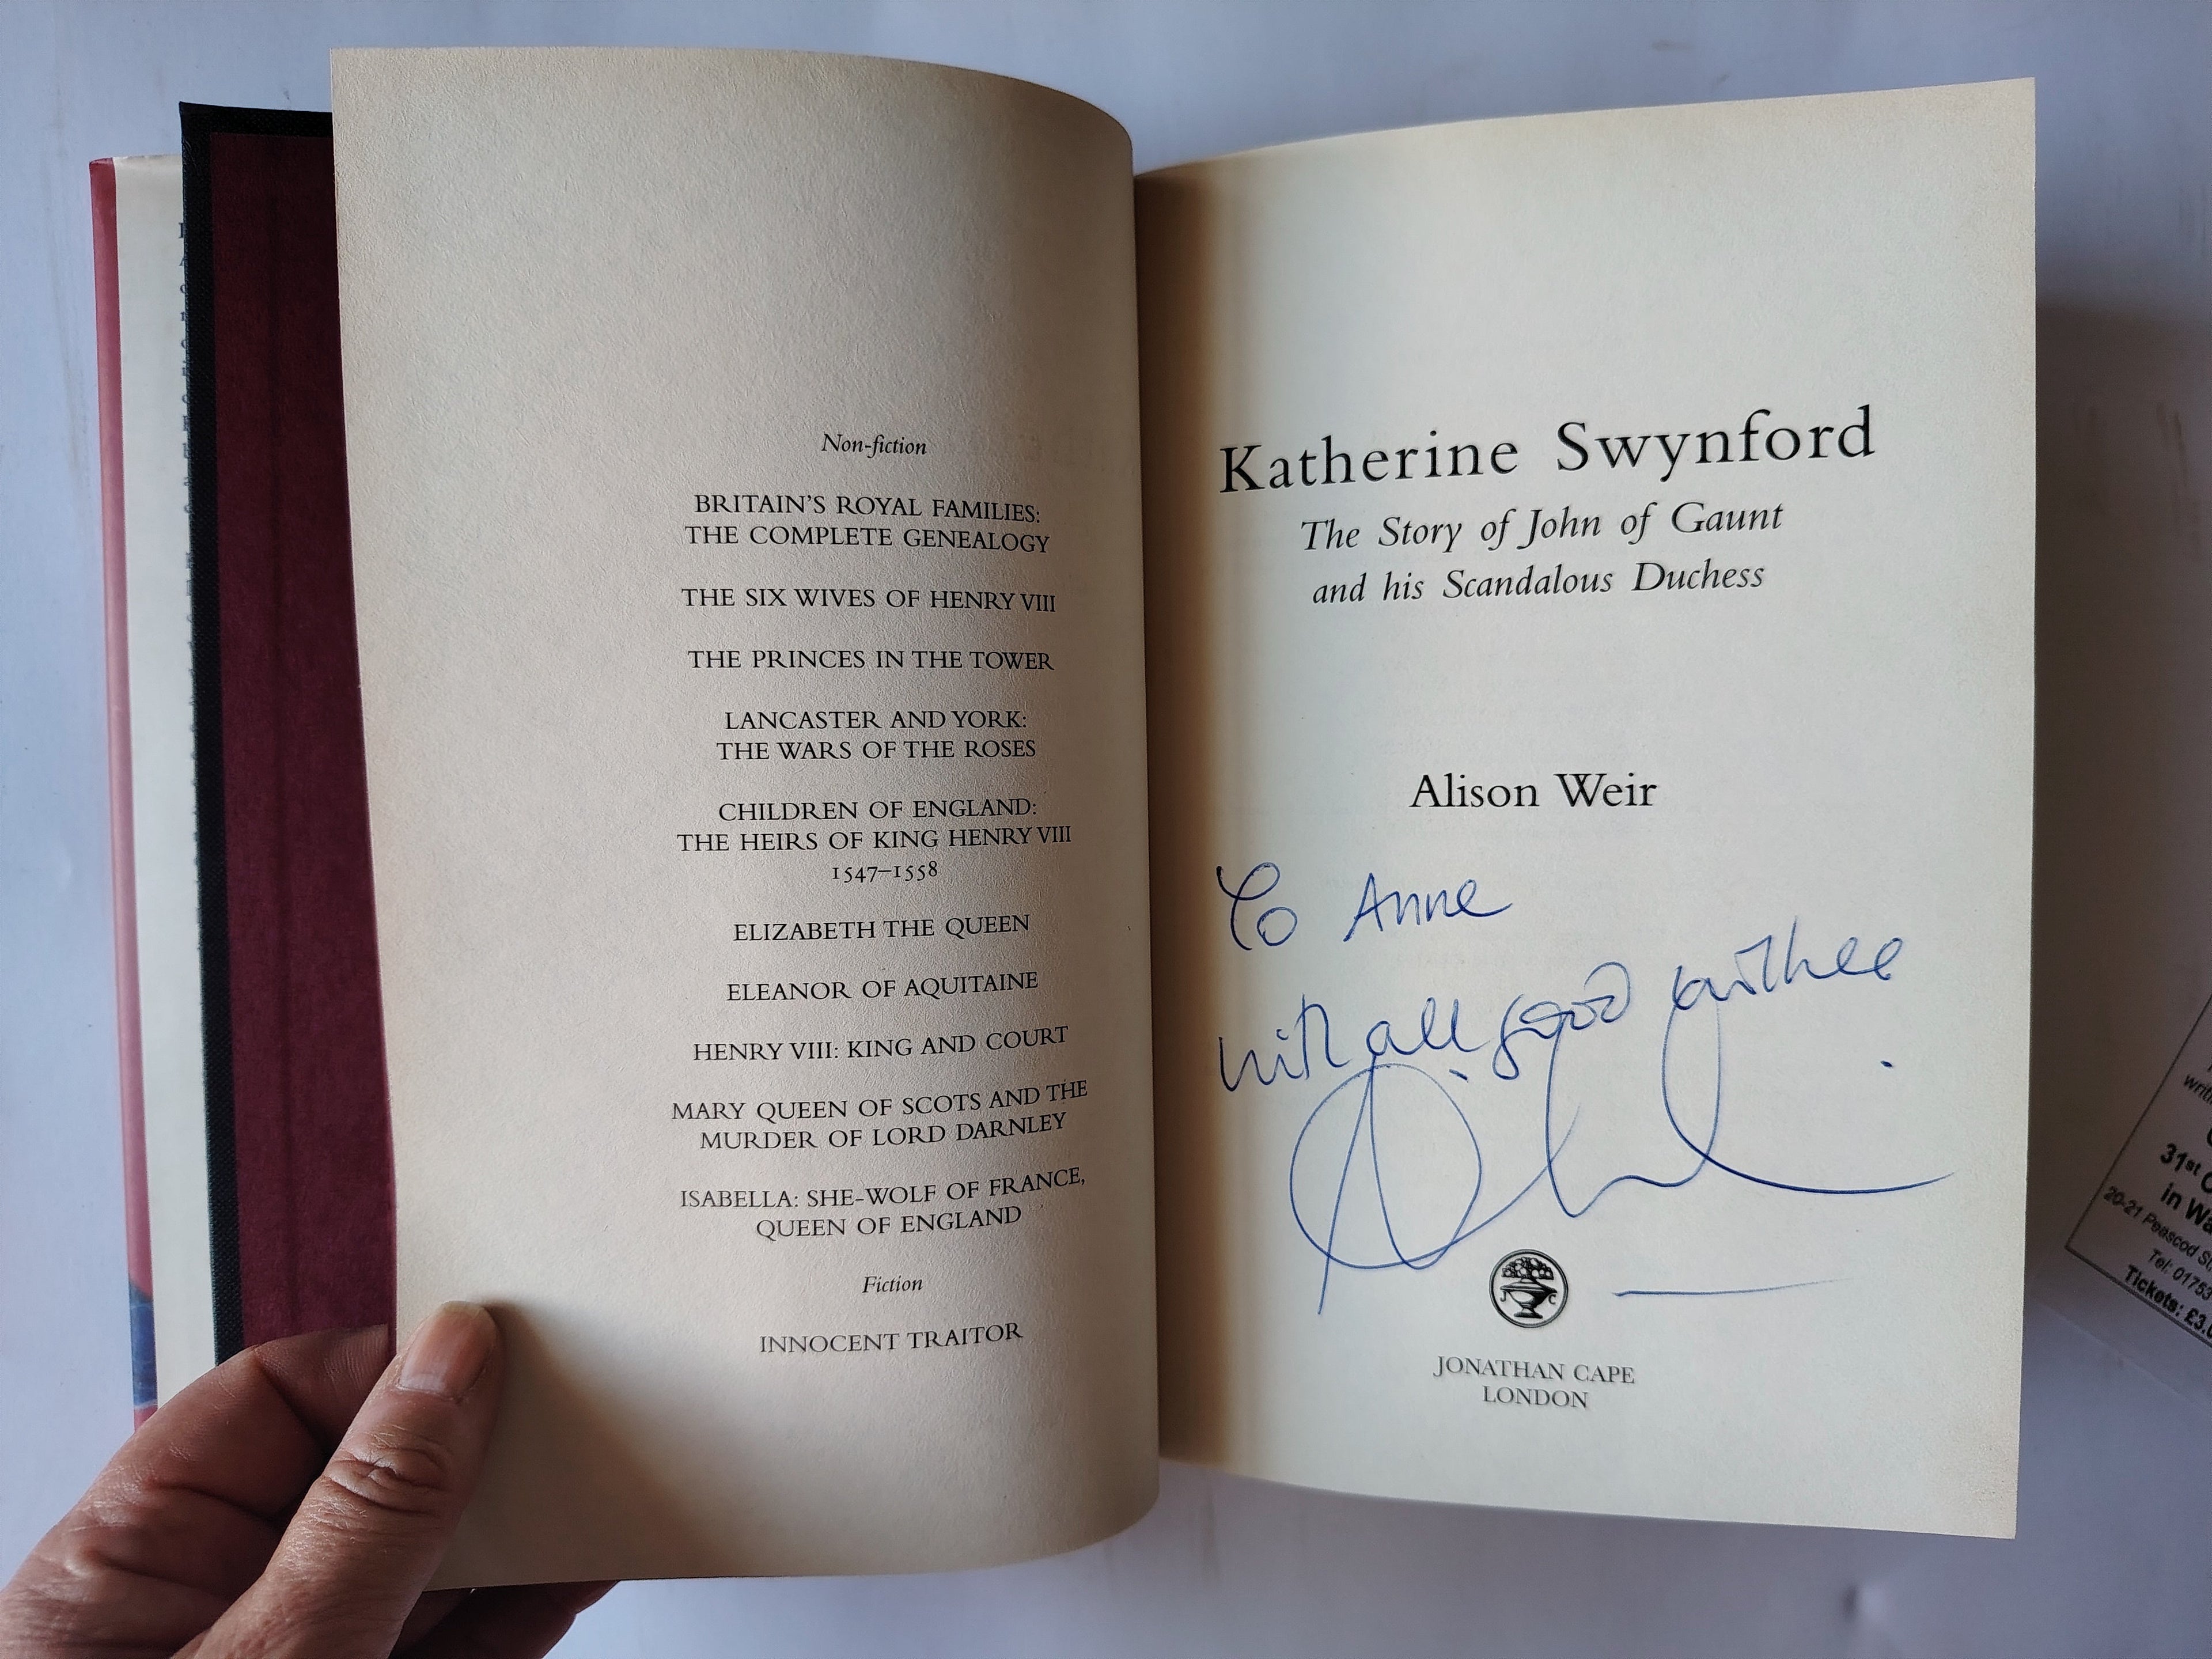 Non-fiction
BRITAIN'S ROYAL FAMILIES:
THE COMPLETE GENEALOGY
THE SIX WIVES OF HENRY VIII
THE PRINCES IN THE TOWER
LANCASTER AND YORK:
THE WARS OF THE ROSES
CHILDREN OF ENGLAND:
THE HEIRS OF KING HENRY VIII
1547–1558
ELIZABETH THE QUEEN
ELEANOR OF AQUITAINE
HENRY VIII: KING AND COURT
MARY QUEEN OF SCOTS AND THE
MURDER OF LORD DARNLEY
ISABELLA: SHE-WOLF OF FRANCE,
QUEEN OF ENGLAND
Fiction
INNOCENT TRAITOR
Katherine Swynford
The Story of John of Gaunt
and his Scandalous Duchess
Alison Weir
To Anne
with all good wishes
J C
JONATHAN CAPE
LONDON
31st
in
20-21 Peascod
Tel: 01753
Tickets: